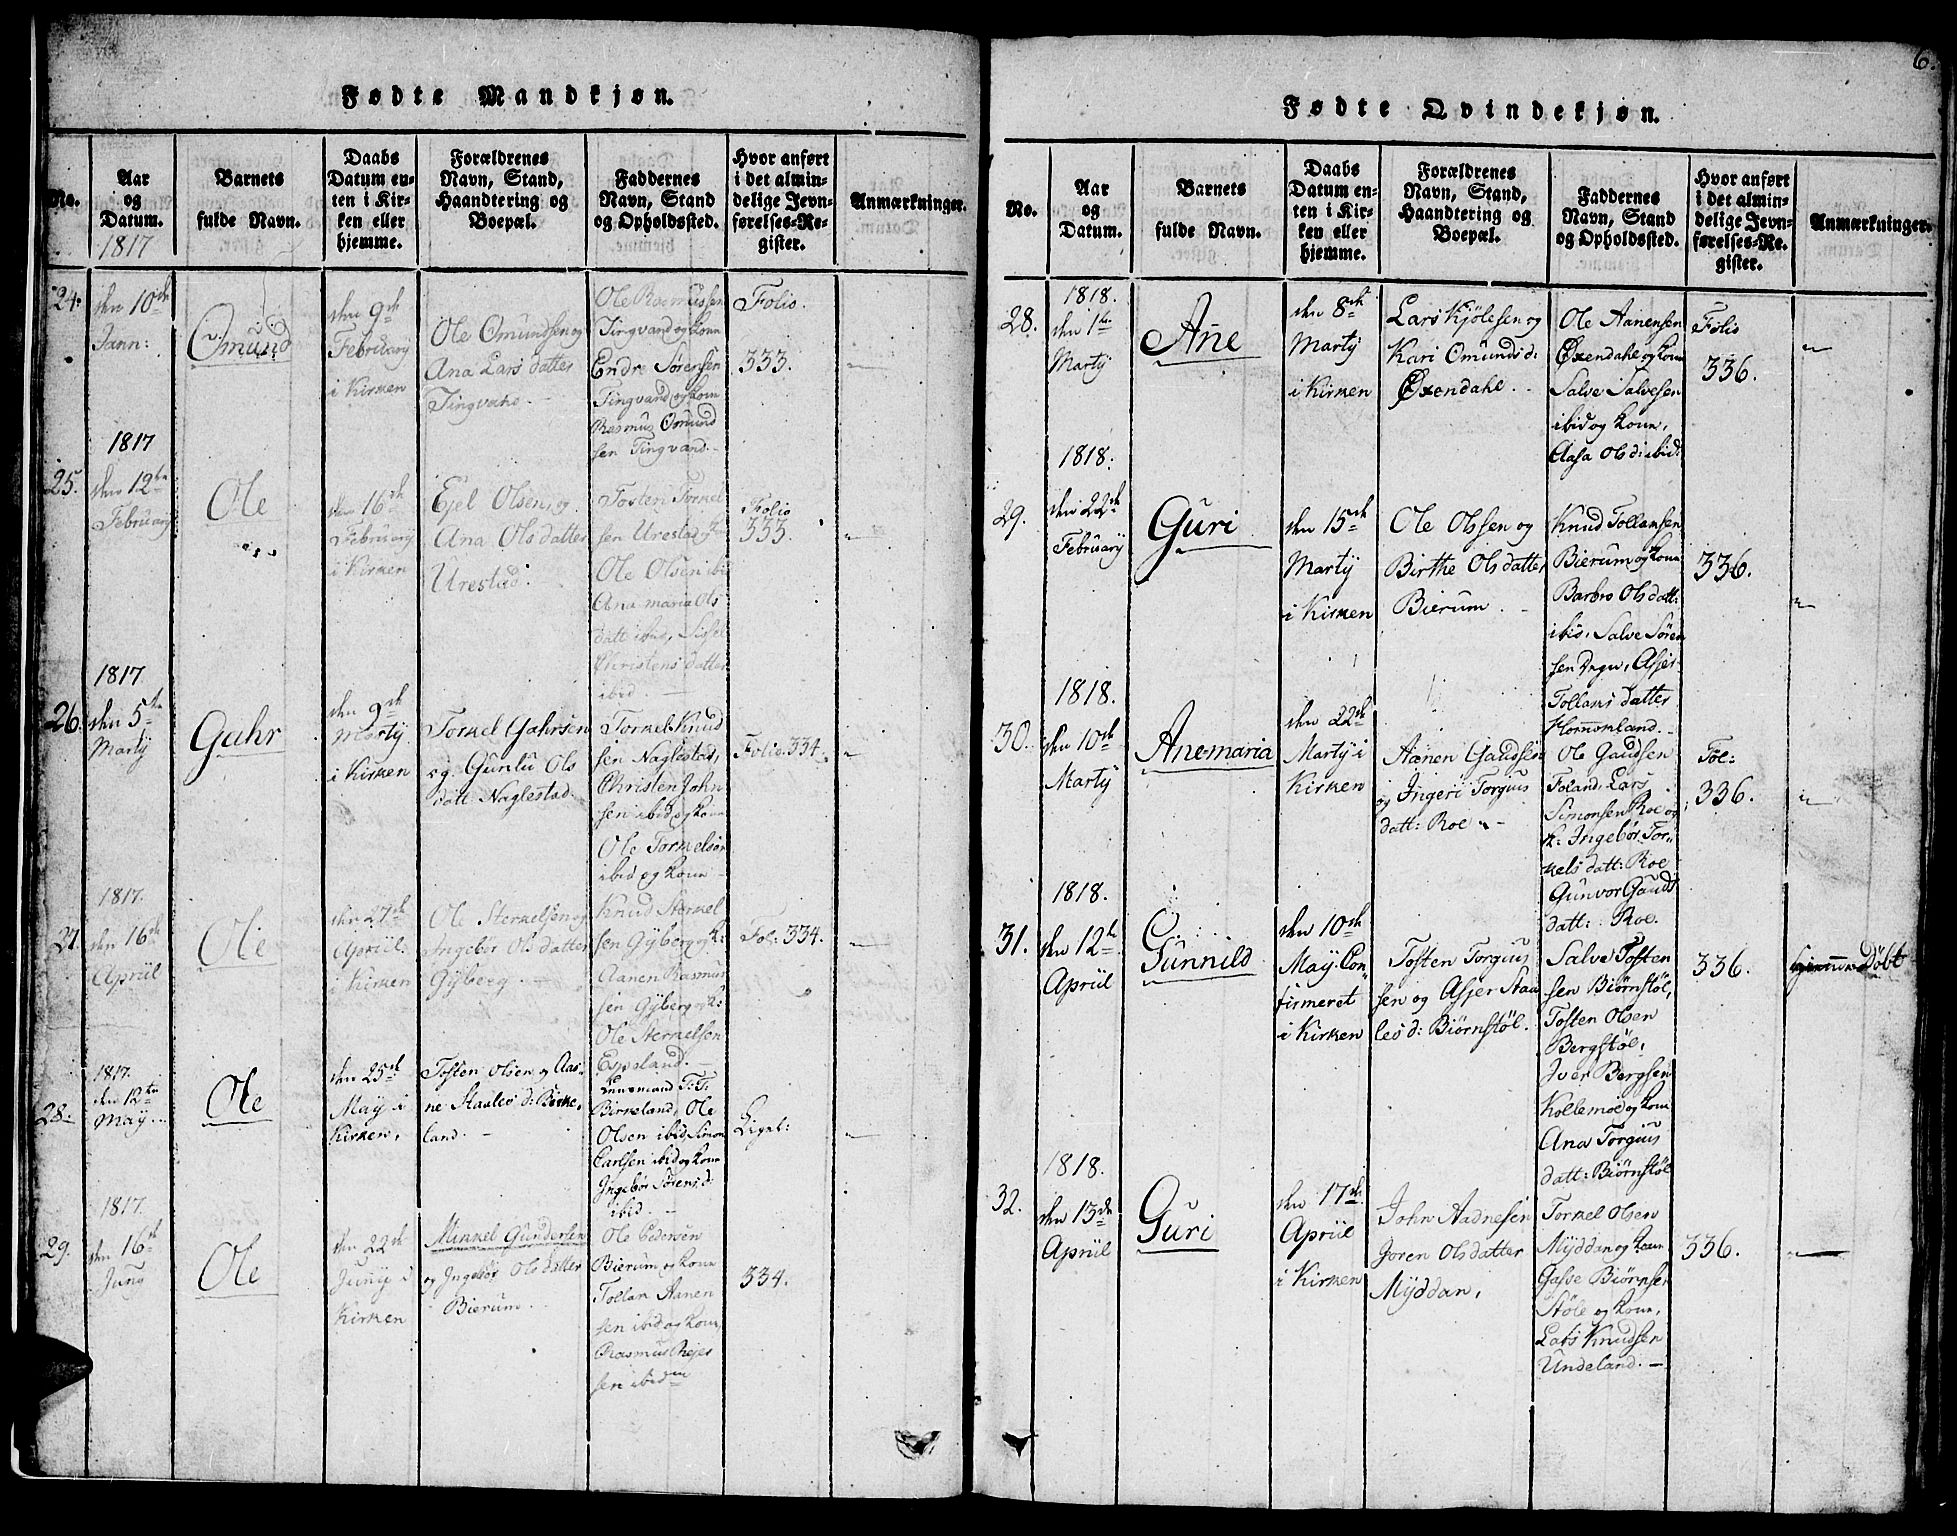 Fødte Mandkjøn.
No.
Aar
og
Datum.
1817
Barnets
fulde Navn.
Daabs
Datum en-
ten i Kir-
ken eller
hjemme.
Forældrenes
Navn, Stand,
Haandtering og
Boepæl.
Faddernes
Navn, Stand
og Opholdssted.
Hvor anført
i det almin-
delige Jevn-
førelses-Re-
gister.
Anmærkninger.
24.
den 10de
Jann:
Omund
den 9de
Februarÿ
i Kirken
Ole Omundsen og
Ana Lars datter
Tingvatne.
Ole Rasmussen
Tingvand og kone
Endre Sørensen
Tingvand og kone
Rasmus Omund
sen Tingvand.
Folio.
333.
1817
25.
den 12te
Februarÿ
Ole
den 16de
Februarÿ
i Kirken
Ejel Olsen og
Ana Olsdatter
Urestad
Tosten Torkel
sen Urestad
Ole Olsen ibid
Ana maria Ols
datt ibid, Sisse
Christens datter
ibid.
Folio
333.
1817
26.
den 5te
Martÿ
Gahr
den 9de
Martÿ
i Kirken
Torkel Gahrsen
og Guntu Ols
datt Naglestad.
Torkel Knud
sen Naglestad,
Christen John
sen ibid og kone
Ole Torkelsen
ibid og kone
Folio 334.
1817.
27.
den 16de
Apriil
Ole
den 27de
Apriil.
i Kirken
Ole Sterkelsen og
Ingebor Olsdatter
Gÿberg.
Knud Sterkel
sen Gÿberg og k:
Aanen Rasmus
sen Gÿberg og k:
Ole Sterkelsen
Espeland.
Fol: 334.
1817.
28.
den 12te
Maÿ.
Ole
den 25de
Maÿ i
Kirken.
Tosten Olsen og Aas-
ne Staales d: Birke-
land.
Lensmand T: T:
Birkeland, Ole
Olsen ibid, Simon
Carlsen ibid og kone
Ingebor Sørens d:
ibid.
Ligel:
1817.
29.
den 16de
Junÿ
Ole
den 22de
Junÿ i
Kirken
Mikkel Gundersen
og Ingebor Olsdatter
Bierum.
Ole Pedersen
Bierum og kone
Tollak Aanen
sen ibid og kone,
Rasmus Rejer
sen ibid
334.
6.
Fødte Qvindekjøn.
No.
Aar
og
Datum.
Barnets
fulde Navn.
Daabs
Datum en-
ten i Kir-
ken eller
hjemme.
Forældrenes
Navn, Stand,
Haandtering og
Boepæl.
Faddernes
Navn, Stand
og Opholdssted.
Hvor anført
i det almin-
delige Jevn-
førelses-Re-
gister.
Anmærkninger.
28.
1818.
den 1te
Martÿ
Ane
den 8de
Martÿ
i Kirken
Lars Kjølesen og
Kari Omunds d:
Øxendahl.
Ole Aanensen
Øxendahl og kone
Salve Salvesen
ibid og kone,
Aasa Ols d: ibid:
Folio
336.
1818.
29.
den 22de
Februarÿ
Guri
den 15de
Martÿ
i Kirken
Ole Olssen og
Birthe Olsdatter
Bierum.
Knud Tollaksen
Bierum og kone
Barbro Olsdatt:
ibid, Salve Søren
sen Degn, Asser
Tollaks datter
Hommeland.
336.
1818.
30.
den 10de
Martÿ
Anemaria
den 22de
Martÿ i
Kirken
Aanen Gaudsen
og Ingeri Torguus
datt: Roe
Ole Gaudsen
Foland, Lars
Simonsen Roe og
k: Ingebor Tor-
kels datt: Roe
Gunvor Gauds
datt: Roe.
Fol:
336.
1818.
31.
den 12te
Apriil
Gunnild
den 10de
Maÿ. Con-
firmeret
i Kirken
Tosten Torguus
sen og Asser Staa
les d: Biørnstøl.
Salve Tosten
sen Biørnstøl,
Tosten Olsen
Bergstøl,
Iver Bergsen
Kollemoe og kone
Ana Torguus
datt: Biørnstøl
336.
Hjemme Døbt
1818.
32.
den 13de
Apriil
Guri
den 17de
Apriil
i Kirken
John Aadnesen
Joren Olsdatter
Mÿddan,
Torkel Olsen
Mÿddan og kone
Gasse Biørnsen
Støle og kone,
Lars Knudsen
Undeland.
336.